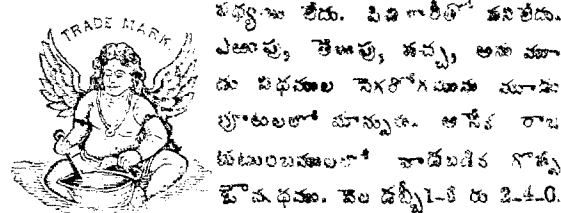 TRADE MARK
పథ్యము లేదు. పిచికారీతో పనిలేదు.
ఎఱుపు, తెలుపు, పచ్చ, అను మూ
డు విధముల సెగరోగమును మూడు
పూటలలో మాన్పును. అనేక రాజ
కుటుంబములలో వాడబడిన గొప్ప
ఔషధము. వెల డబ్బీ 1-కి రు 2-4-0.